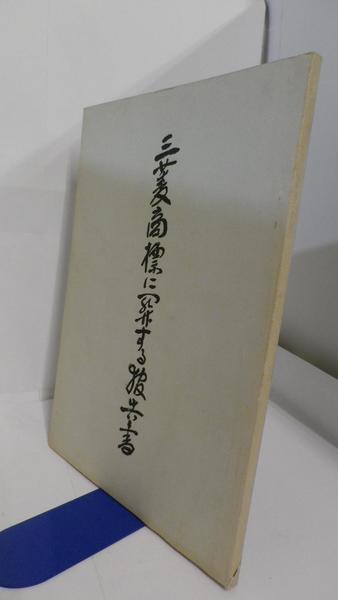 三菱商標に関する報告書